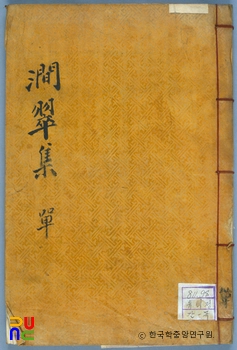 澗翠集 單
ⓒ 한국학중앙연구원